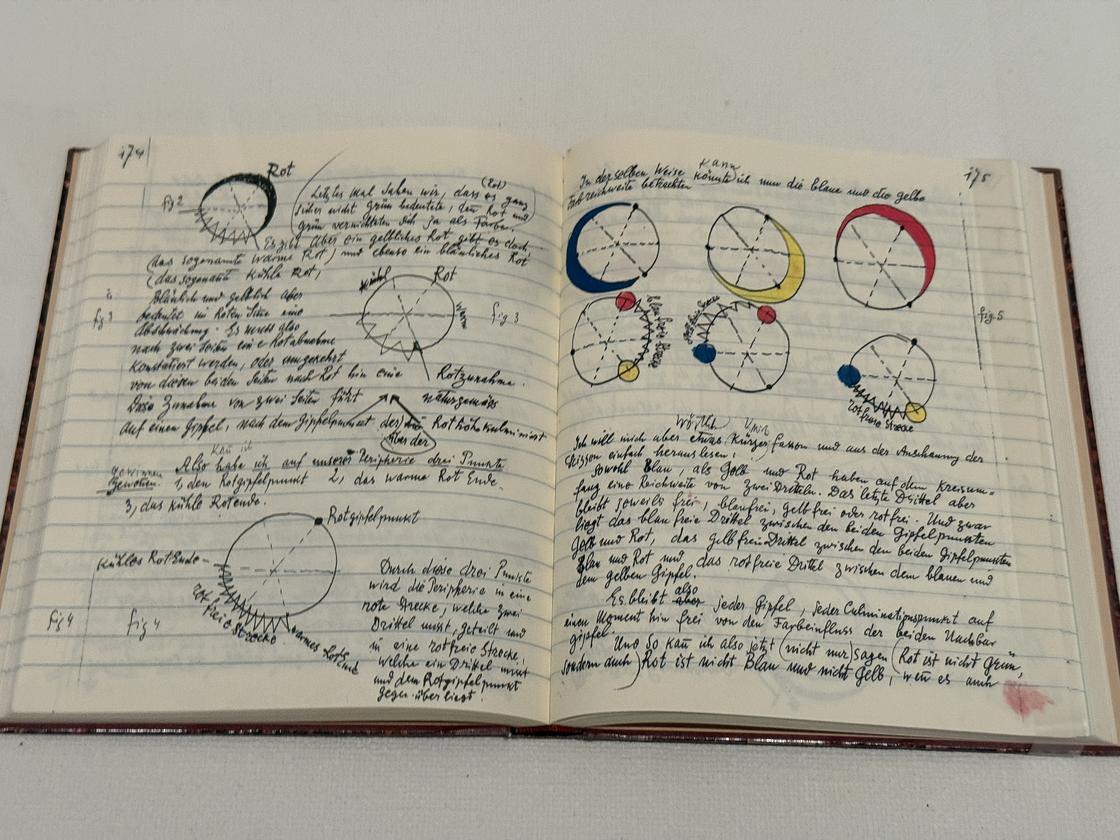 174
Rot
fig 2
Letztes Mal sahen wir, dass es ganz
(Rot)
sicher nicht grün bedeutete, denn Rot und
grün vernichteten sich ja als Farbe.
Es gibt aber ein gelbliches Rot gibt es doch
(das sogenannte warme Rot) und ebenso ein bläuliches Rot
(das sogenannt kühle Rot,
kühl
Rot
warm
fig 3
fig 3
Bläulich und gelblich aber
bedeutet im Roten Sinne eine
Abschwächung. Es muss also
nach zwei Seiten eine Rotabnahme
konstatiert werden, oder umgekehrt
von diesen beiden Seiten nach Rot hin eine Rotzunahme.
Diese Zunahme von zwei Seiten führt naturgemäss
auf einen Gipfel, nach dem Gipfelpunkt der Rothöhe kulminiert
über der
kan ich
Also habe ich auf unserer Peripherie drei Punkte
gewinnen
gewonnen. 1, den Rotgipfelpunkt 2, das warme Rot Ende.
3, das kühle Rotende.
Rotgipfelpunkt
Kühles Rot Ende
rot freie Strecke
warmes Rotend
fig 4
fig 4
Durch diese drei Punkte
wird die Peripherie in eine
rote Strecke, welche zwei
Drittel misst, geteilt und
in eine rotfreie Strecke,
welche ein Drittel misst
und dem Rotgipfelpunkt
gegenüber liegt.
175
kann
In derselben Weise könnte ich nun die blaue und die gelbe
Farbreichweite betrachten
blau freie Strecke
gelb freie Strecke
rot freie Strecke
fig 5
Ich will mich aber etwas kürzer fassen und aus der Anschauung der
Skizzen einfach herauslesen:
Sowohl Blau, als Gelb und Rot haben auf dem Kreisum=
fang eine Reichweite von zwei Dritteln. Das letzte Drittel aber
bleibt jeweils frei, blaufrei, gelbfrei oder rotfrei. Und zwar
liegt das blau freie Drittel zwischen den beiden Gipfelpunkten
Gelb und Rot, das gelbfreie Drittel zwischen den beiden Gipfelpunkten
Blau und Rot und das rotfreie Drittel zwischen dem blauen und
dem gelben Gipfel.
also
Es bleibt aber jeder Gipfel, jeder Culminationspunkt auf
einem Moment hin frei von den Farbeinfluss der beiden Nachbar
gipfel.
Und so kan ich also jetzt (nicht nur) sagen (Rot ist nicht Grün,
sondern auch) Rot ist nicht Blau und nicht Gelb, wen es auch